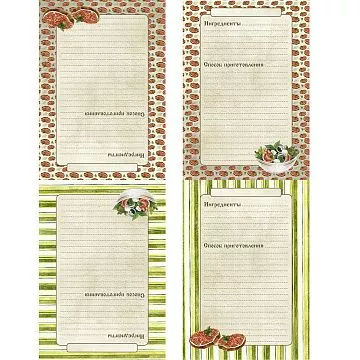 Ингредиенты
Способ приготовления
Ингредиенты
Способ приготовления
Ингредиенты
Способ приготовления
Ингредиенты
Способ приготовления